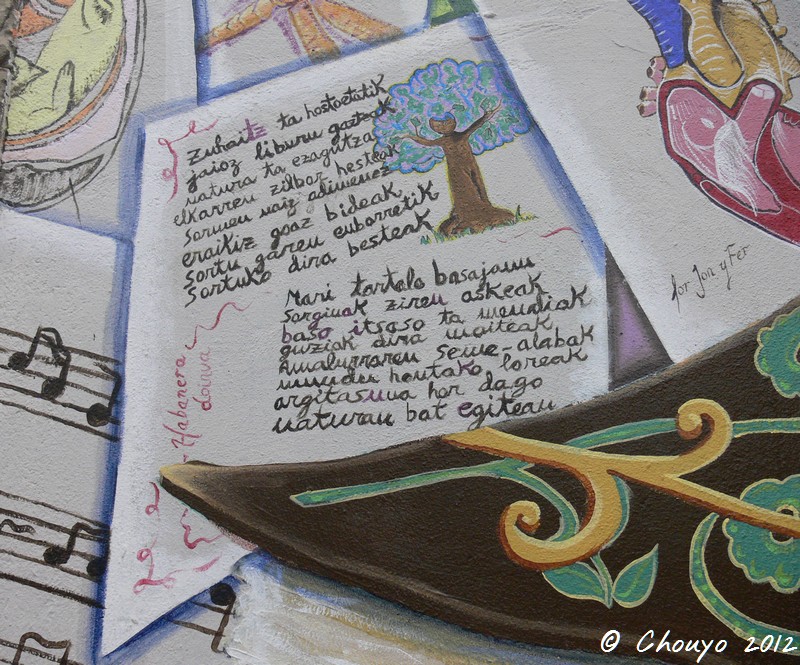 Zuhaitz ta hostoetatik
jaioz liburu gazteak
natura ta ezagutza
elkarren zilbor hesteak
Sormen naiz adimenez
eraikiz goaz bideak
Sortu garen enborretik
Sortuko dira besteak
Mari tartalo basajaun
Sorginak ziren askeak
baso itsaso ta mendiak
guziak dira maiteak
Amalurraren seme-alabak
mundu hontako loreak
argitasuna hor dago
naturan bat egitean
Habanera
doinua
for Jon y Fer
© Chouyo 2012